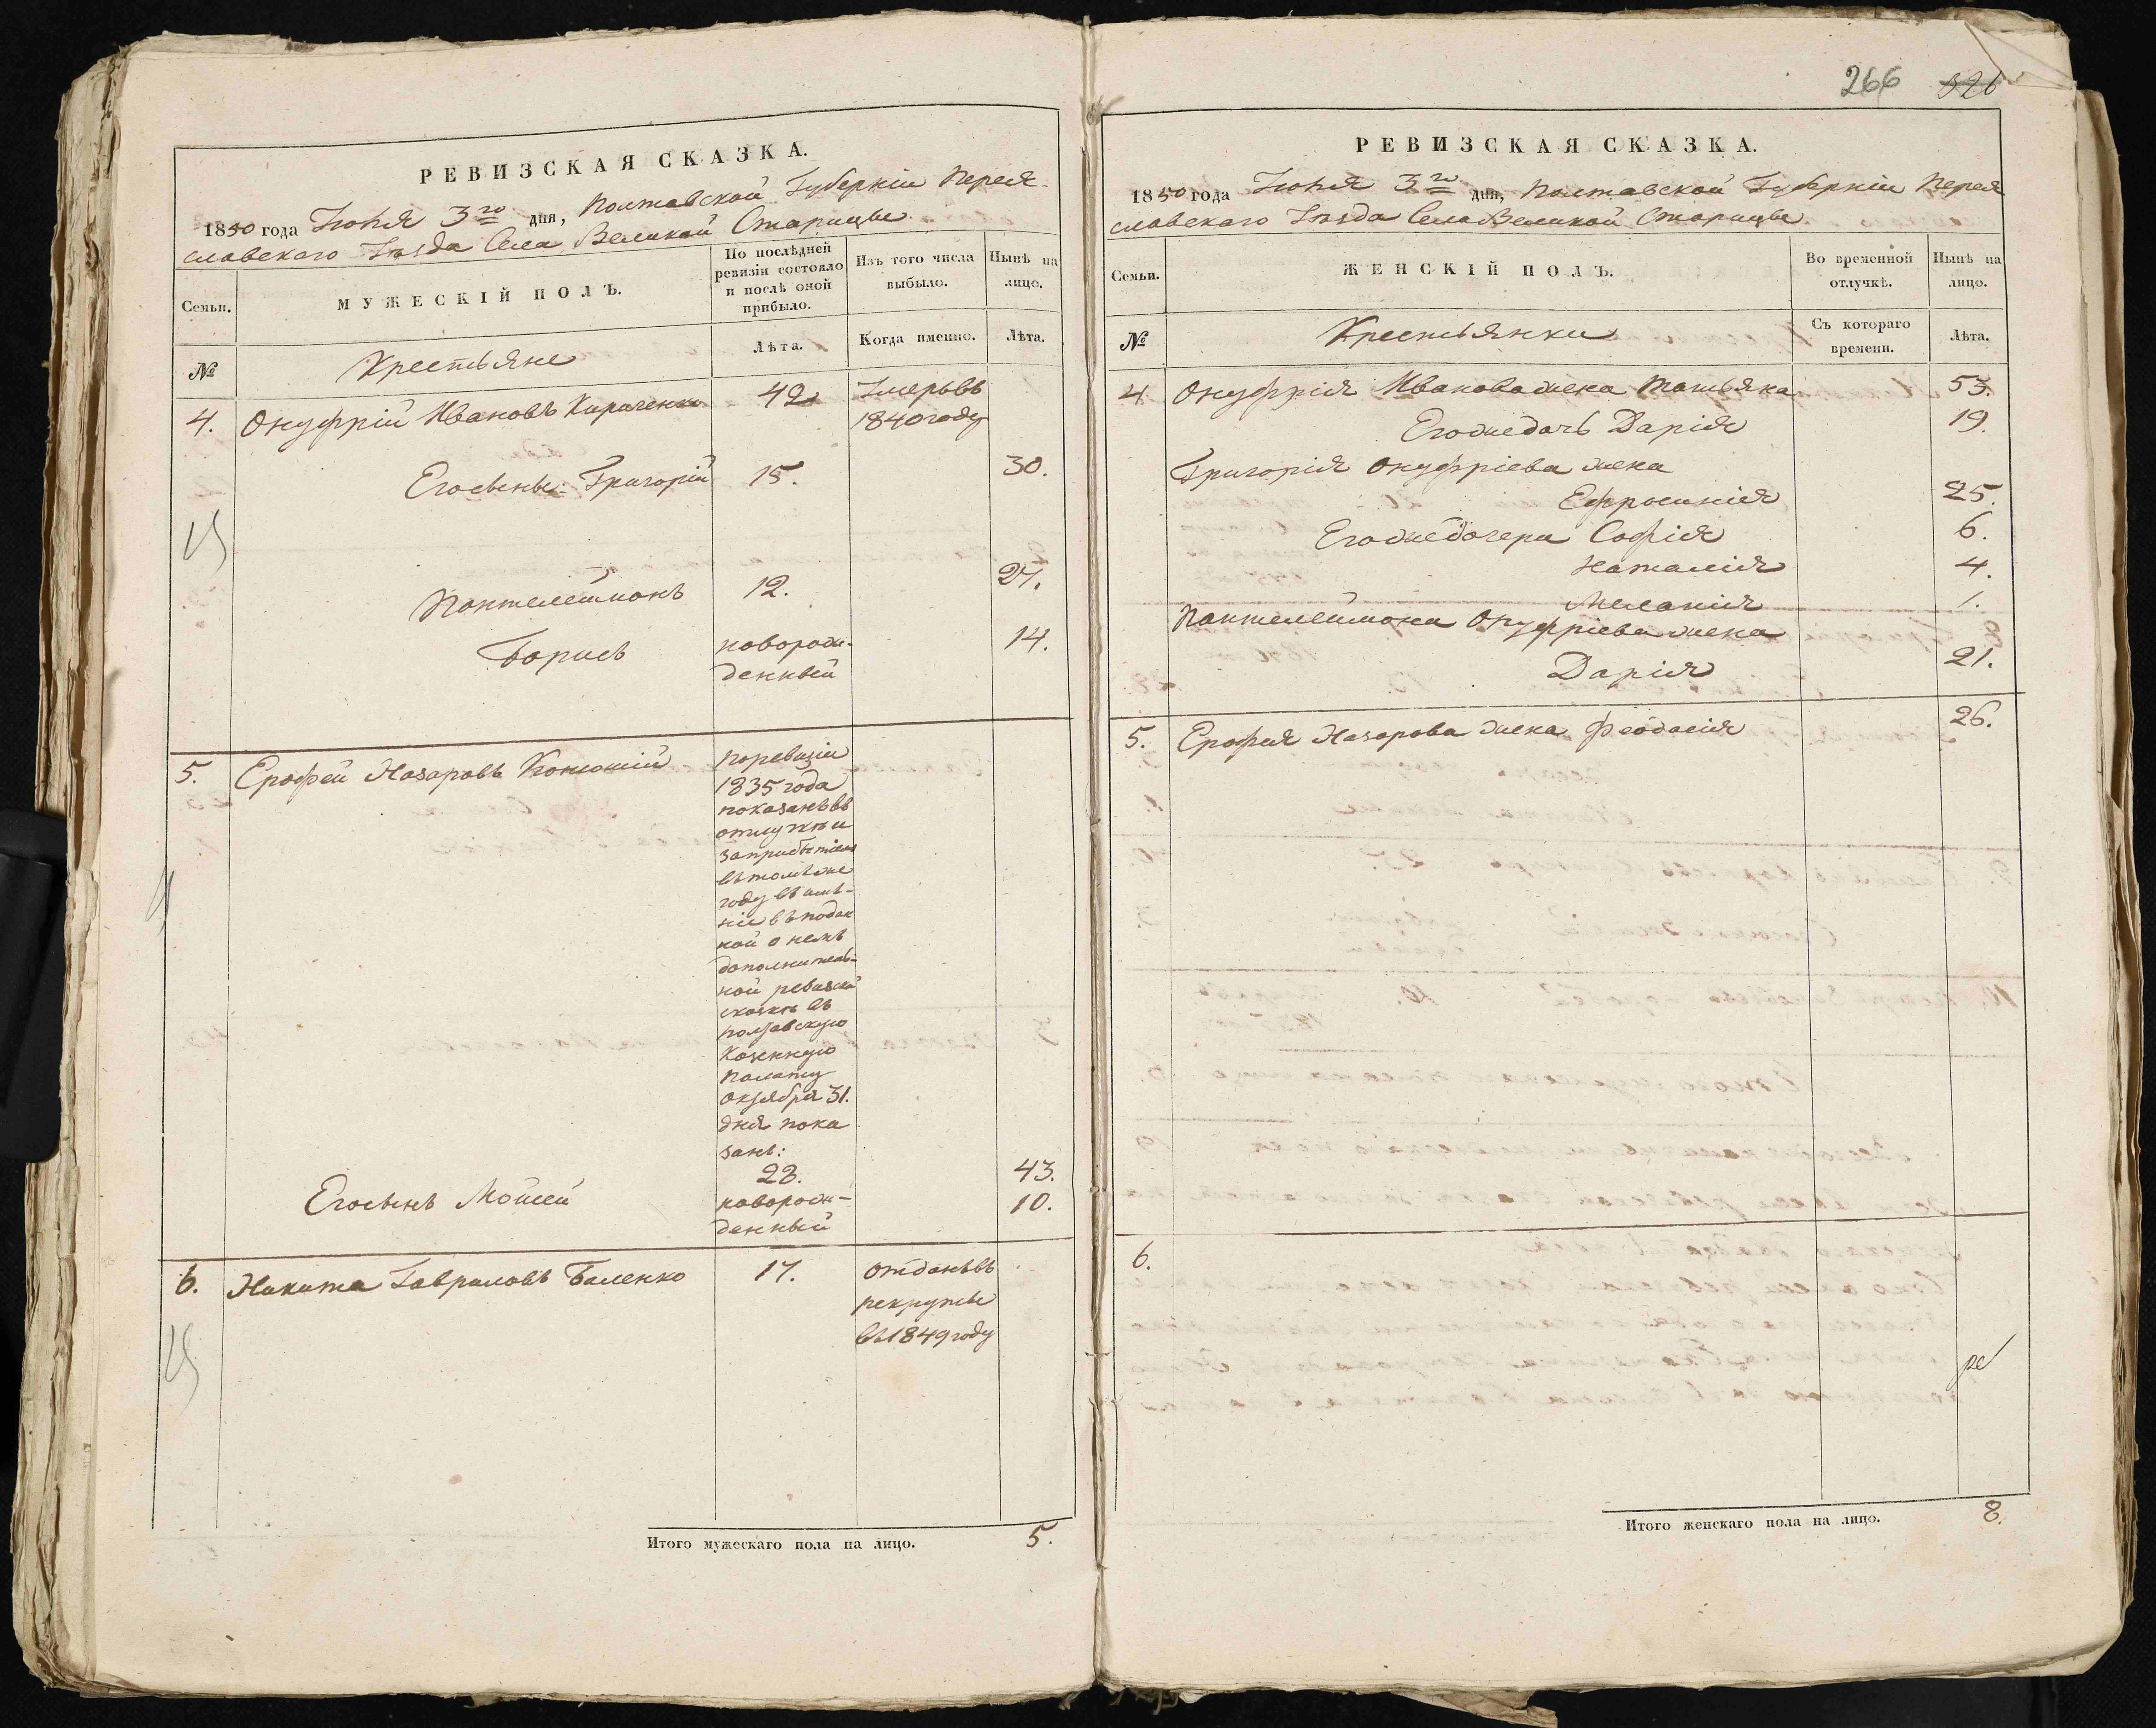 РЕВИЗСКАЯ СКАЗКА.
1850 года Іюня 3го дня, Полтавской Губерніи Перея-
славскаго Уѣзда Села Великой Старицы
Семьи.
МУЖЕСКІЙ ПОЛЪ.
По послѣдней
ревизіи состояло
и послѣ оной
прибыло.
Изъ того числа
выбыло.
Нынѣ на
лицо.
№
Крестьяне
Лѣта.
Когда именно.
Лѣта.
4. Онуфрій Ивановъ Кириченко 42 Умеръ въ
1840 году
Его сыны: Григорій 15. 30.
Пантелеймонъ 12. 27.
Борисъ новорож- 14.
денный
5. Ерофей Назаровъ По ревизіи
1835 года
показанъ въ
отлучкѣ и
за прибытіемъ
въ томъ же
году въ имѣ-
ніе въ подан
ной о немъ
дополнитель-
ной ревизской
сказкѣ въ
Полтавскую
Казенную
Палату
Октября 31.
дня пока
занъ:
28. 43.
Его сынъ Мойсей новорож- 10.
денный
6. Никита Гавриловъ Баленко 17. Отданъ въ
рекруты
въ 1849 году
Итого мужескаго пола на лицо. 5.
266 326
РЕВИЗСКАЯ СКАЗКА.
1850 года Іюня 3го дня, Полтавской Губерніи Перея
славскаго Уѣзда Села Великой Старицы
Семьи.
ЖЕНСКІЙ ПОЛЪ.
Во временной
отлучкѣ.
Нынѣ на
лицо.
№
Крестьянки
Съ котораго
времени.
Лѣта.
4 Онуфрія Иванова жена Татьяна 53.
Его же дочь Дарія 19.
Григорія Онуфріева жена
Ефросинія 25.
Его же дочери Софія 6.
Наталія 4.
Меланія 1.
Пантелеймона Онуфріева жена
Дарія 21.
5. Ерофея Назарова жена Феодосія 26.
6.
Итого женскаго пола на лицо. 8.